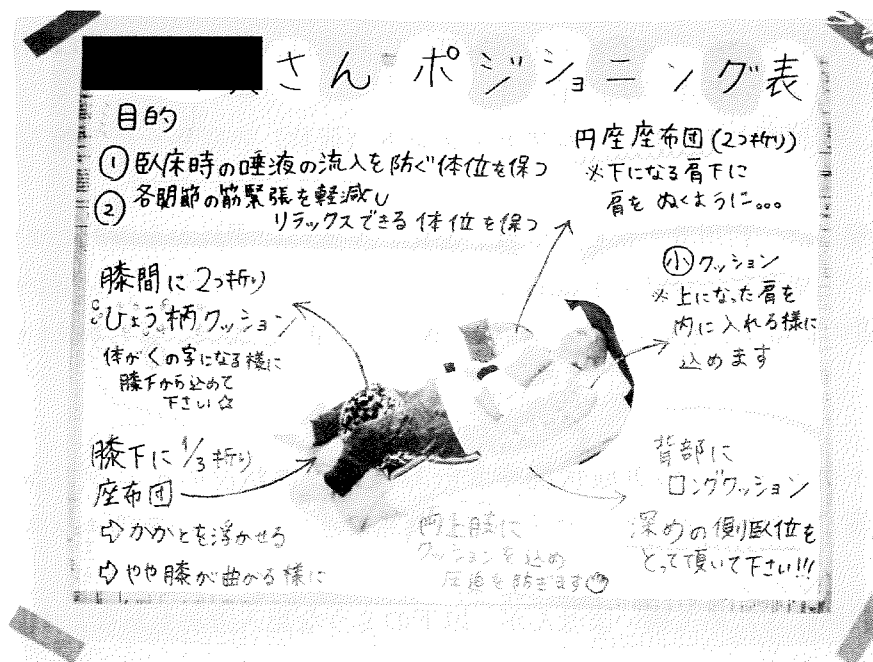 さん ポジショニング表
目的
① 臥床時の唾液の流入を防ぐ体位を保つ
② 各関節の筋緊張を軽減し
リラックスできる体位を保つ
円座座布団(2つ折り)
※下になる肩下に
肩をぬくように。。。
㋛クッション
※上になった肩を
内に入れる様に
込めます
膝間に2つ折り
ひょう柄クッション
体がくの字になる様に
膝下から込めて
下さい☆
膝下に1/3折り
座布団
⇨かかとを浮かせる
⇨やや膝が曲がる様に
両上肢に
クッションを込め
圧迫を防ぎます
背部に
ロングクッション
深めの側臥位を
とって頂いて下さい!!!